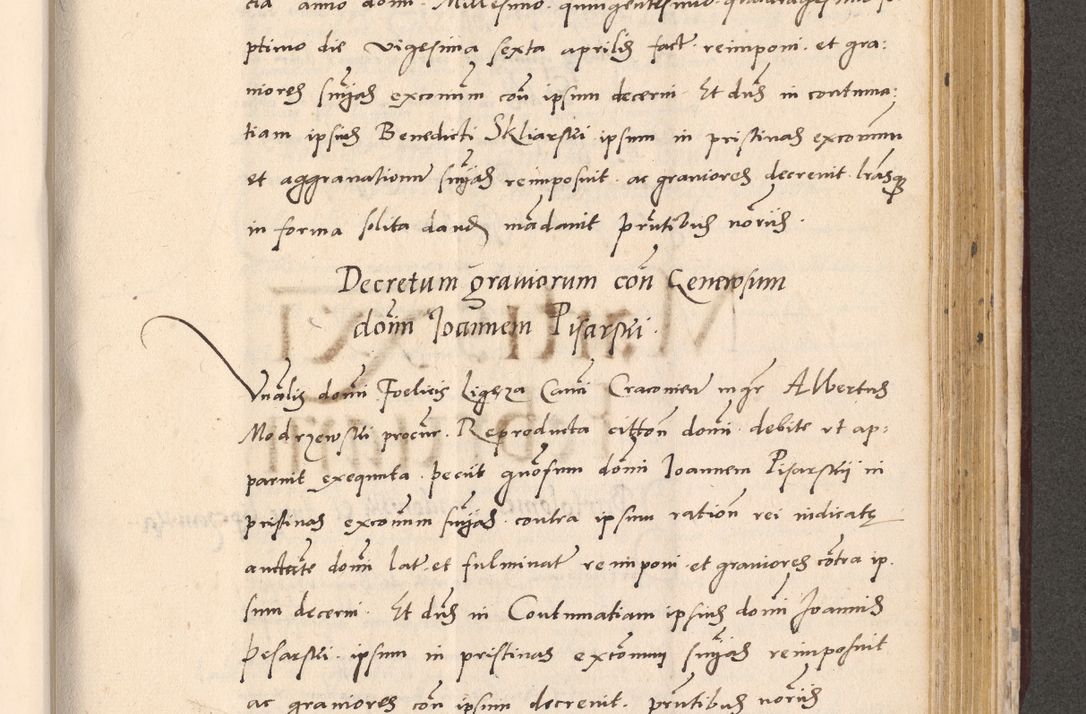 cia anno domi. Millesimo quingentesimo quadragesimo se
ptimo die vigesima sexta aprilis fact. reimponi et gra:
niores snias excomm con ipsum decerni Et dns in contuma:
tiam ipsius Benedicti Skliarski ipsum in pristinas excomm
et aggravationum snias reimposuit ac graviores decrevit lrasq
in forma solita dandas madavit prntibus noriis.
Decretum graviorum con Generosum
dom Joannem Pisarski.
Vnalis domi Foelicis Ligeza Cani Cracovien mgr Albertus
Modrzewski procur. Reproducta citton domi debite ut ap:
paruit exequuta petiit gnosum domi Joannem Pisarskii in
pristinas excomm snias contra ipsum ration rei iudicate
auctate domi lat et fulminat reimponi et graviores cotra ip.
sum decerni. Et dns in Contumatiam ipsius domi Joannis
Pesarski ipsum in pristinas excomm snias reimposuit
ac graviores con ipsum decrevit. prntibus noriis